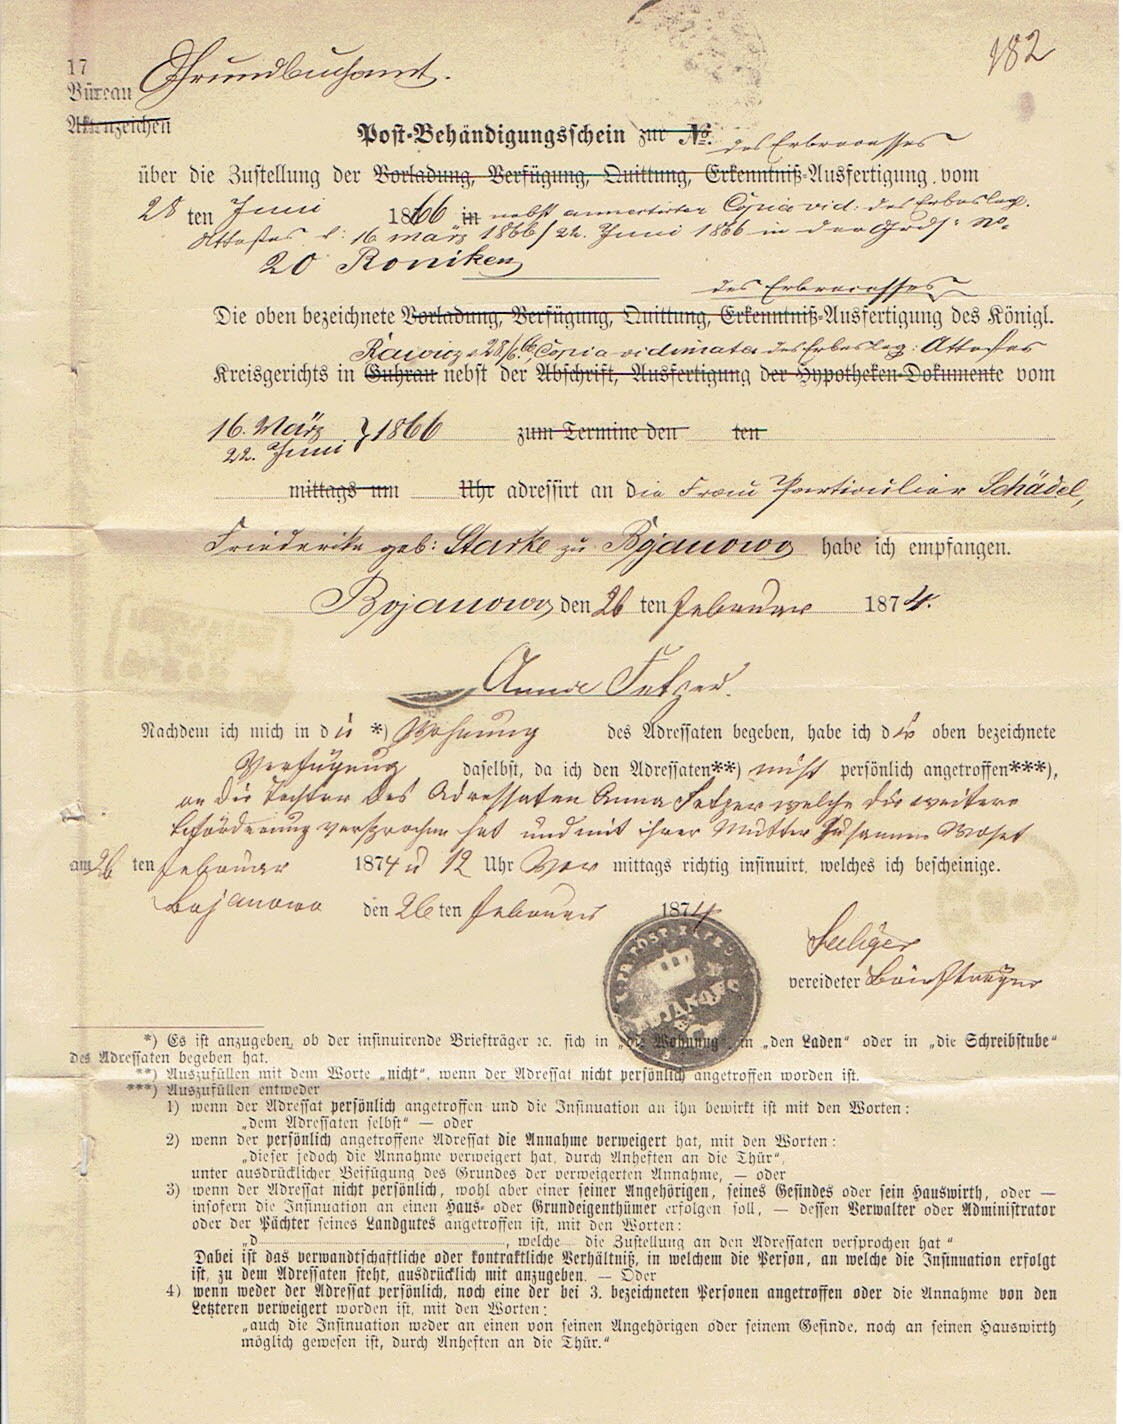 182
17
Büreau Grundbuchamt.
Aktenzeichen
Post-Behändigungsschein zur No. des Erbrecesses
über die Zustellung der Vorladung, Verfügung, Quittung, Erkenntniß-Ausfertigung vom
28 ten Juni 1866 in nebst annectirter Copia vid: des Erbesleg.
Attestes v: 16 März 1866/22. Juni 1866 in der Grdst: No.
20 Roniken
des Erbrecesses
Die oben bezeichnete Vorladung, Verfügung, Quittung, Erkenntniß-Ausfertigung des Königl.
Rawicz v 28/6. 66, Copia vidimata des Erbesleg: Attestes
Kreisgerichts in Guhrau nebst der Abschrift, Ausfertigung der Hypotheken-Dokumente vom
16. März } 1866 zum Termine den ten
22. Juni
mittags um Uhr adressirt an die Frau Particulier Schädel,
Friederike geb: Starke zu Bojanowo habe ich empfangen.
Bojanowo den 26 ten Februar 1874.
Anna Fetzer.
Nachdem ich mich in die *) Wohnung des Adressaten begeben, habe ich die oben bezeichnete
Verfügung daselbst, da ich den Adressaten**) nicht persönlich angetroffen***),
an die Tochter des Adressaten Anna Fetzer welche die weitere
Beförderung versprochen hat und mit ihrer Mutter zusammen
am 26 ten Februar 1874 u 12 Uhr Vor mittags richtig insinuirt, welches ich bescheinige.
Bojanowo den 26 ten Februar 1874
K. PR. POST-EXPED. BOJANOWO
Seeliger
vereideter Briefträger
*) Es ist anzugeben, ob der insinuirende Briefträger ꝛc. sich in „die Wohnung“, in „den Laden“ oder in „die Schreibstube“
des Adressaten begeben hat.
**) Auszufüllen mit dem Worte „nicht“, wenn der Adressat nicht persönlich angetroffen worden ist.
***) Auszufüllen entweder
1) wenn der Adressat persönlich angetroffen und die Insinuation an ihn bewirkt ist mit den Worten:
„dem Adressaten selbst“ — oder
2) wenn der persönlich angetroffene Adressat die Annahme verweigert hat, mit den Worten:
„dieser jedoch die Annahme verweigert hat, durch Anheften an die Thür“,
unter ausdrücklicher Beifügung des Grundes der verweigerten Annahme, — oder
3) wenn der Adressat nicht persönlich, wohl aber einer seiner Angehörigen, seines Gesindes oder sein Hauswirth, oder —
insofern die Insinuation an einen Haus- oder Grundeigenthümer erfolgen soll, — dessen Verwalter oder Administrator
oder der Pächter seines Landgutes angetroffen ist, mit den Worten:
„d , welche die Zustellung an den Adressaten versprochen hat“
Dabei ist das verwandtschaftliche oder kontraktliche Verhältniß, in welchem die Person, an welche die Insinuation erfolgt
ist, zu dem Adressaten steht, ausdrücklich mit anzugeben. — Oder
4) wenn weder der Adressat persönlich, noch eine der bei 3. bezeichneten Personen angetroffen oder die Annahme von den
Letzteren verweigert worden ist, mit den Worten:
„auch die Insinuation weder an einen von seinen Angehörigen oder seinem Gesinde, noch an seinen Hauswirth
möglich gewesen ist, durch Anheften an die Thür.“